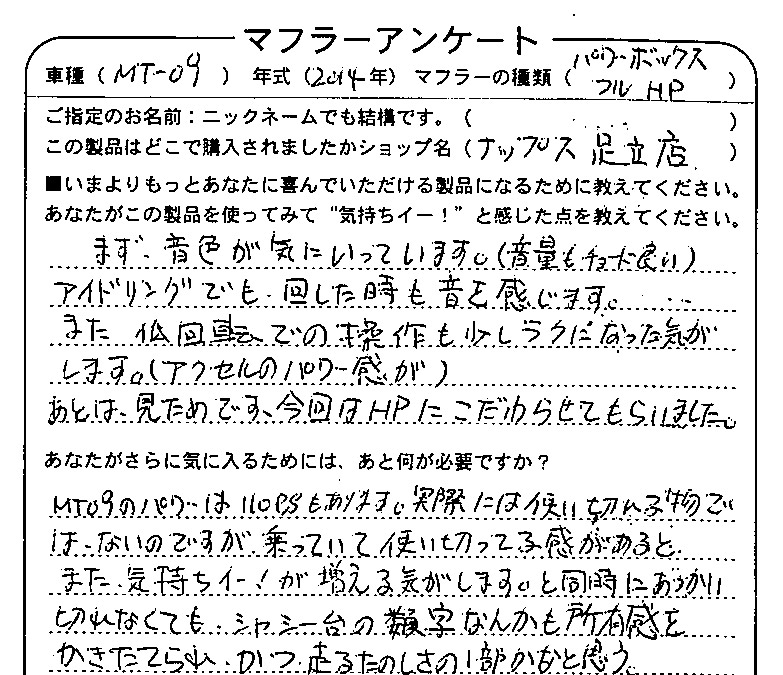 マフラーアンケート
車種 ( MT-09 ) 年式 (2014年) マフラーの種類 ( パワーボックス フル HP )
ご指定のお名前：ニックネームでも結構です。( )
この製品はどこで購入されましたかショップ名 ( ナップス 足立店 )
■いまよりもっとあなたに喜んでいただける製品になるために教えてください。
あなたがこの製品を使ってみて“気持ちイー！”と感じた点を教えてください。
まず、音色が気にいっています。(音量もチョード良い)
アイドリングでも、回した時も音を感じます。
また 低回転での操作も少しラクになった気が
します。(アクセルのパワー感が)
あとは、見ためです、今回はHPにこだわらせてもらいました。
あなたがさらに気に入るためには、あと何が必要ですか？
MT09のパワーは110PSもあります。実際には使い切れる物で
は、ないのですが、乗っていて使い切ってる感があると、
また、気持ちイー！が増える気がします。と同時にあつかい
切れなくても、シャシー台の数字なんかも所有感を
かきたてられ、かつ、走るたのしさの1部かなと思う。